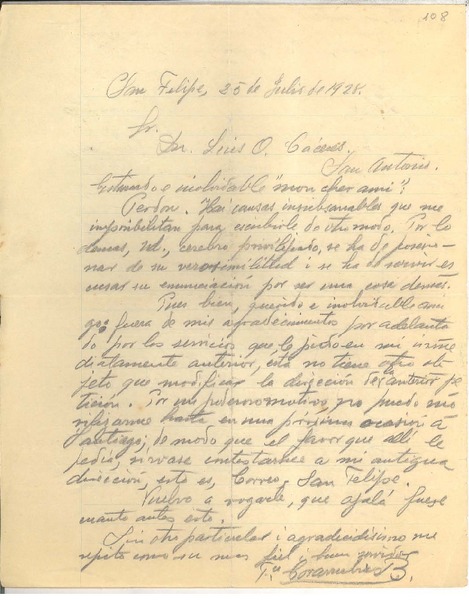 108
San Felipe, 25 de Julio de 1928.
Sr.
Dn. Luis O. Cáceres.
San Antonio.
Estimado e inolvidable "mon cher ami":
Perdon. Hai causas insubsanables que me
imposibilitan para escribirle de otro modo. Por lo
demas, Ud., cerebro privilejiado, se ha de posesio-
nar de su verosimilitud i se ha de servir es-
cusar su enunciacion por ser una cosa demas.
Pues bien, querido e inolvidable ami
go, fuera de mis agradecimientos por adelanta
do por los servicios que le pido en mi
diatamente anterior, ésta no tiene otro ob-
jeto que modificar la direccion de anterior pe-
ticion. Por un poderoso motivo, no puedo mo-
vilizarme hasta en una próxima ocasion á
Santiago; de modo que el favor que allí le
pedia, sírvase contestarme a mi antigua
direccion, esto es, Correo. San Felipe.
Vuelvo a rogarle, que ojalá fuese
cuanto antes esto.
Sin otro particular i agradecidísimo me
repito como su mas fiel i buen servidor
Covarrubias